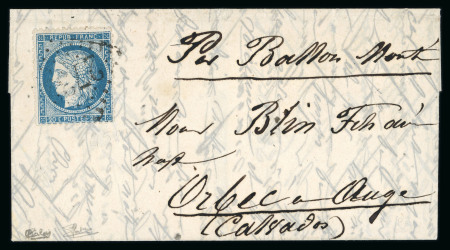 REPUB. FRANC.
20 C. POSTES 20 C.
Par Ballon Monté
Monr Blin Fils ainé
Orbec en Auge
(Calvados)